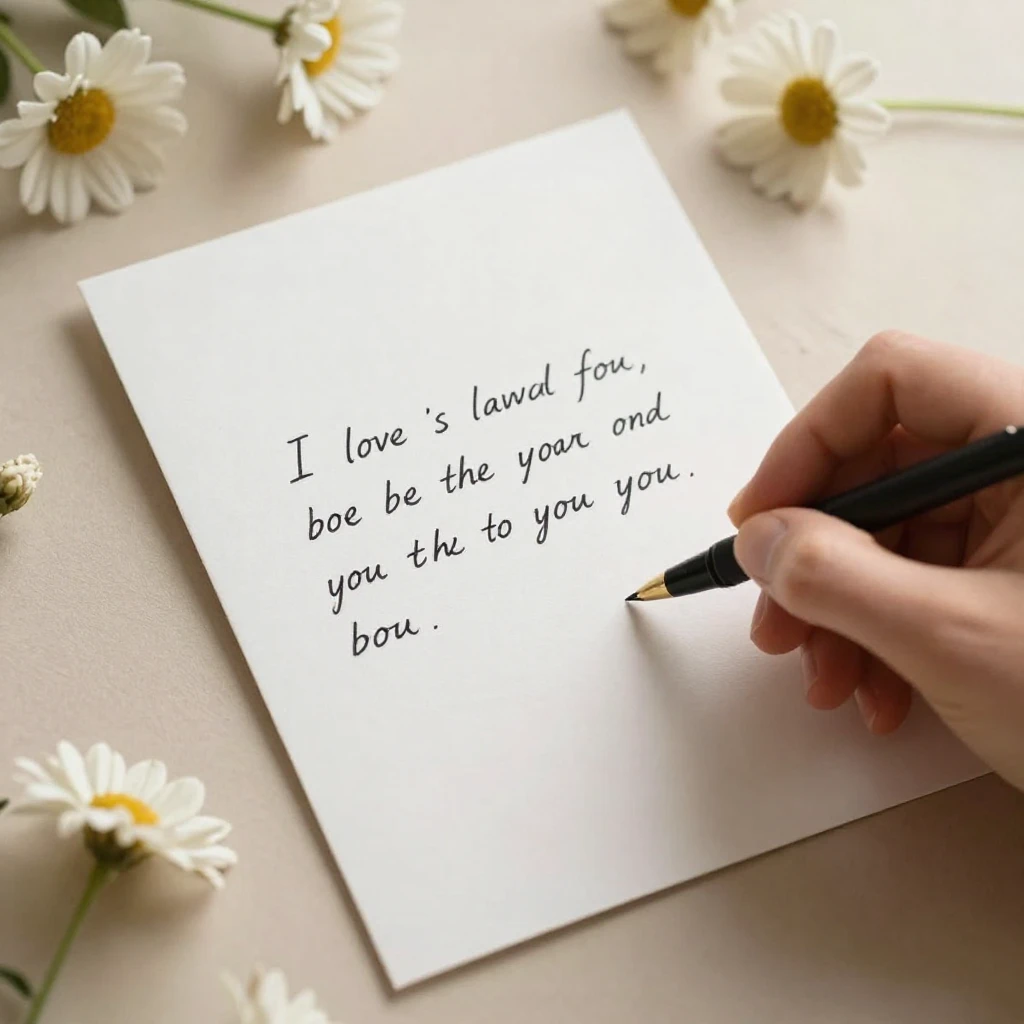 I love 's lawal fou,
boe be the yoar ond
you the to you you.
bou.